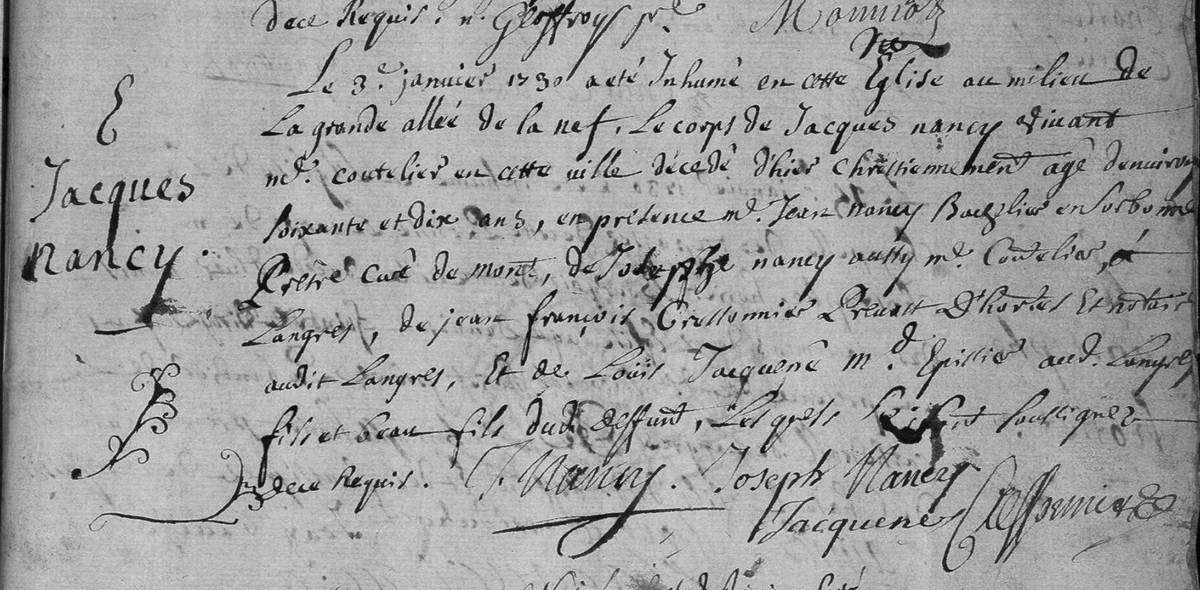 dece Requis. n. Geoffroy pr. Monniot
E
Le 3.e janvier 1730 a eté Inhumé en cette Eglise au milieu de
La grande allée de la nef, Le corps de Jacques nancy vivant
Jacques
md. coutelier en cette ville décedé d'hier Chrêtiennement agé denviron
Soixante et dix ans, en présence md. Jean nancy Bachelier en Sorbonne
nancy.
Prêtre Curé de mont, de Joseph nancy aussy md. Coutelier, a
Langres, de jean françois Cressonnier Prevott D'hortes Et notaire
audit Langres, Et de Loüis Jacquené md. Epissier aud. Langres,
fils et beau fils dud. deffunt, Lesquels se sont soussignez
dece Requis. J. Nancy. Joseph Nancy
Jacquené Cressonnier